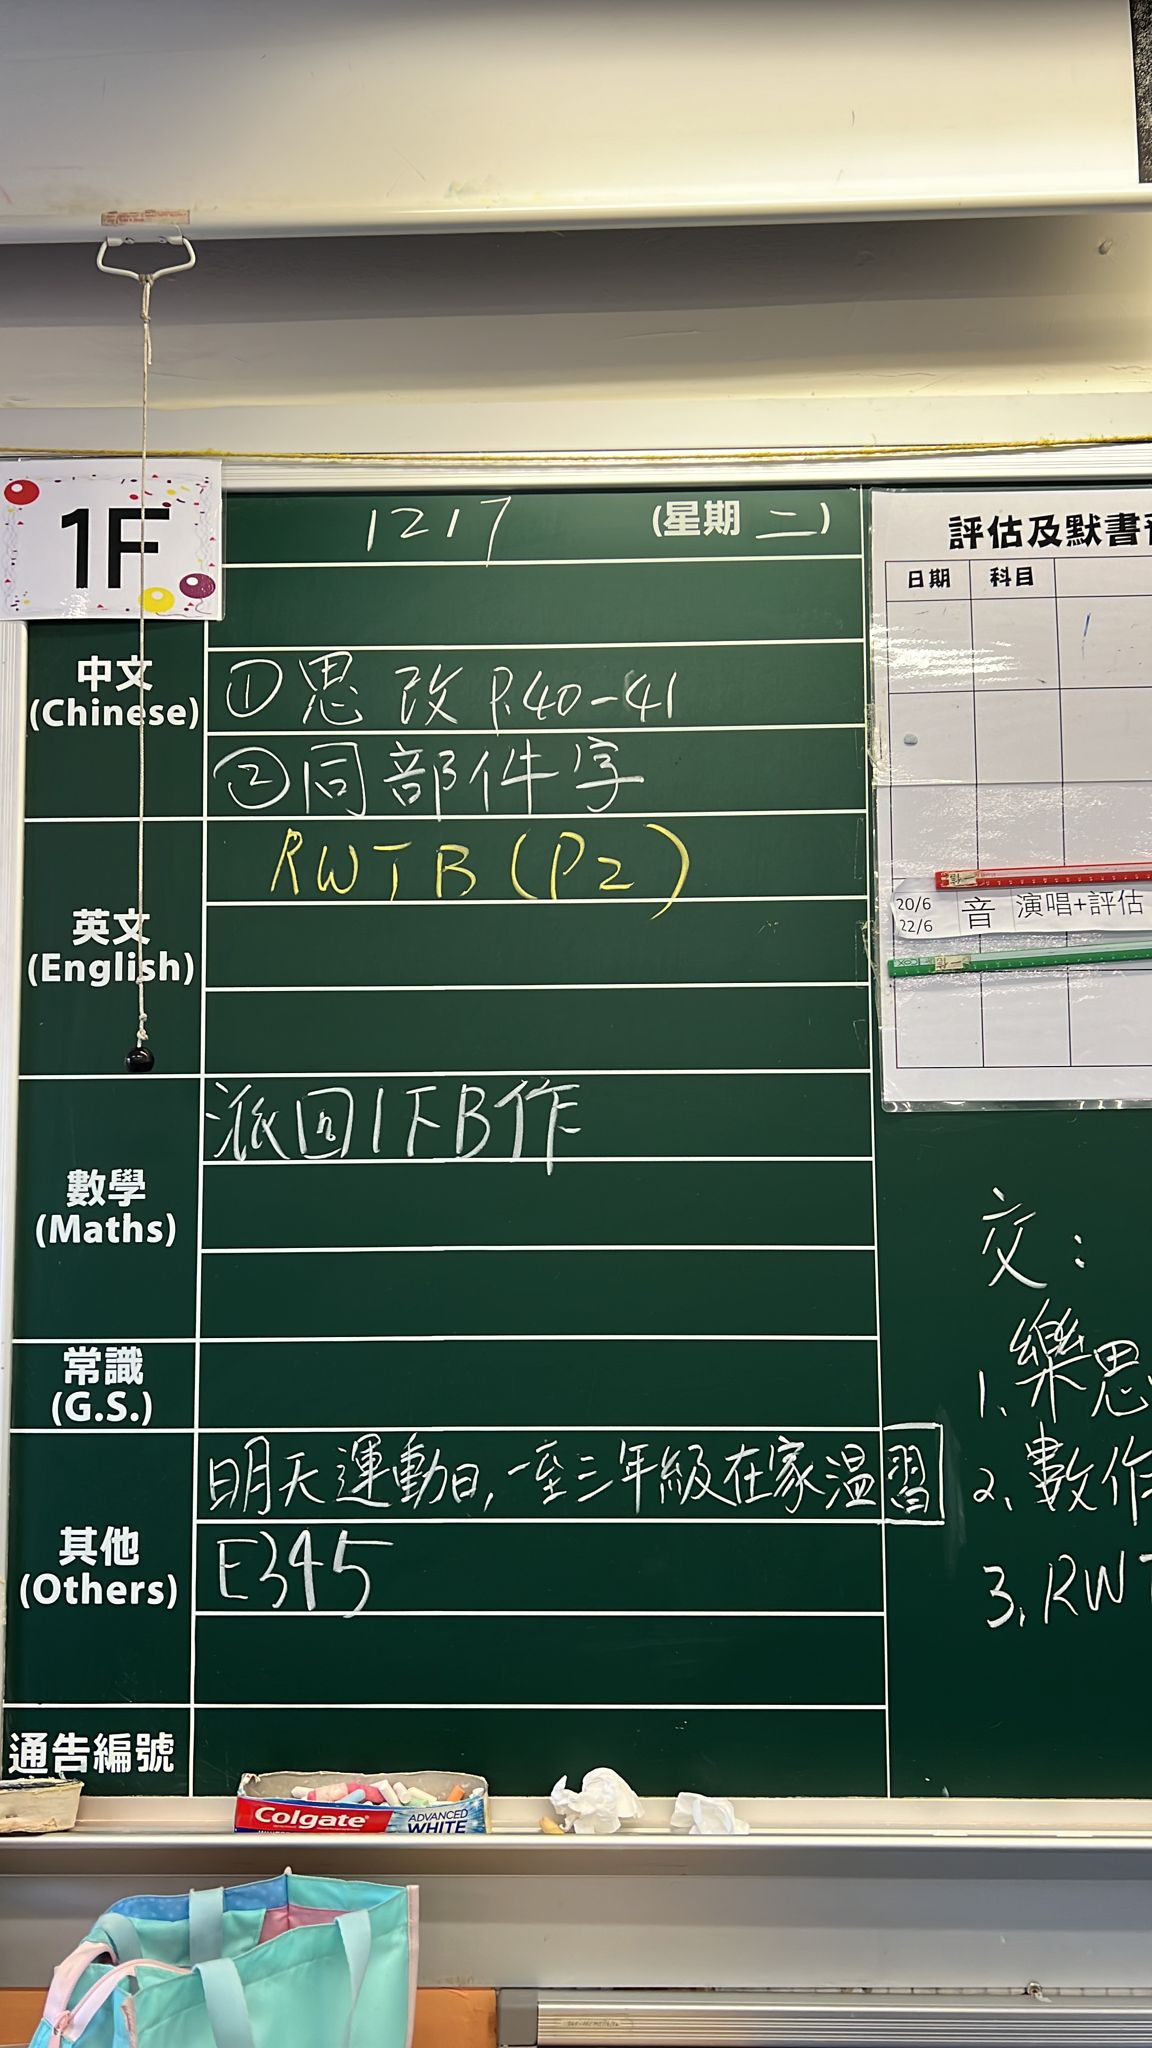 1F
1217 (星期二)
中文
(Chinese)
①思改 P.40-41
②同部件字
英文
(English)
RWTB (P2)
數學
(Maths)
派回1下B作
常識
(G.S.)
其他
(Others)
明天運動日,一至三年級在家溫習
E345
通告編號
評估及默書
日期 科目
20/6
22/6
音 演唱+評估
交:
1. 樂思
2. 數作
3. RWT
Colgate
ADVANCED
WHITE